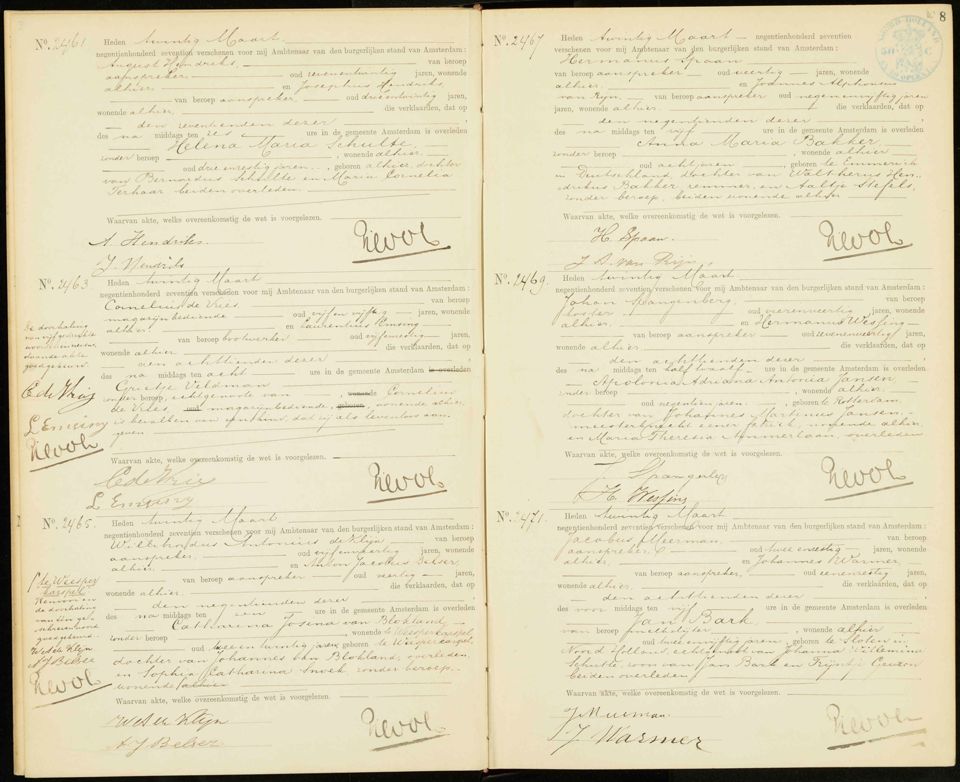 No. 2461
Heden twintig Maart
negentienhonderd zeventien verschenen voor mij Ambtenaar van den burgerlijken stand van Amsterdam:
August Hendriks, van beroep
aanspreker oud zevenentwintig jaren, wonende
alhier en Josephus Hendriks
van beroep aanspreker, oud drieentwintig jaren,
wonende alhier, die verklaarden, dat op
den zeventienden dezer
des na middags ten zes ure in de gemeente Amsterdam is overleden
Helena Maria Schulte
zonder beroep, wonende alhier,
oud drie en zestig jaren, geboren alhier, dochter
van Bernardus Schulte en Maria Cornelia
Terhaar beiden overleden.
Waarvan akte, welke overeenkomstig de wet is voorgelezen.
A. Hendriks
J. Hendriks
No. 2463
Heden twintig Maart
negentienhonderd zeventien verschenen voor mij Ambtenaar van den burgerlijken stand van Amsterdam:
Cornelius de Vries van beroep
magazijnbediende oud vijf en vijftig jaren, wonende
alhier en Laurentius Emsing
van beroep oud vijfenzestig jaren,
wonende alhier die verklaarden, dat op
den achttienden dezer
des na middags ten acht ure in de gemeente Amsterdam is overleden
Grietje Veldman
zonder beroep, echtgenoote van wonende Cornelius
de Vries, oud magazijnbediende, geboren wonende alhier,
is bevallen van een kind, dat zij als levenloos aan
geven
Waarvan akte, welke overeenkomstig de wet is voorgelezen.
C de Vries
L Emsing
De doorhaling
van vijf gedrukte
woorden in neven
staande akte
goedgekeurd.
C de Vries
L Emsing
No. 2465.
Heden twintig Maart
negentienhonderd zeventien verschenen voor mij Ambtenaar van den burgerlijken stand van Amsterdam:
Willibrordus Antonius de Klijn van beroep
aanspreker oud vijfenveertig jaren, wonende
alhier en Anton Jacobus Belser
van beroep aanspreker oud veertig jaren,
wonende alhier die verklaarden, dat op
den negentienden dezer
des na middags ten een ure in de gemeente Amsterdam is overleden
Catharina Josina van Blokland
zonder beroep, wonende te Weesperkarspel,
oud twee en twintig jaren, geboren te Weesperkarspel
dochter van Johannes van Blokland, overleden,
en Sophia Catharina Snoek zonder beroep
wonende alhier
Waarvan akte, welke overeenkomstig de wet is voorgelezen.
W de Klijn
A J Belser
te Weesper
karspel
de doorhaling
van één ge-
schreven woord
goedgekeurd.
W de Klijn
A J Belser
8
No. 2467
Heden twintig Maart negentienhonderd zeventien
verschenen voor mij Ambtenaar van den burgerlijken stand van Amsterdam:
Hermanus Spaan
van beroep aanspreker oud veertig jaren, wonende
alhier en Joannes Alphonsus
van Rijn, van beroep aanspreker oud negenenvijftig jaren
jaren, wonende alhier, die verklaarden, dat op
den negentienden dezer
des na middags ten vijf ure in de gemeente Amsterdam is overleden
Anna Maria Bakker
zonder beroep, wonende alhier
oud acht jaren, geboren te Emmerich
in Duitschland, dochter van Waltherus Hen-
drikus Bakker remmer, en Aaltje Stefels,
zonder beroep, beiden wonende alhier
Waarvan akte, welke overeenkomstig de wet is voorgelezen.
H. Spaan.
J A van Rijn
No. 2469.
Heden twintig Maart
negentienhonderd zeventien verschenen voor mij Ambtenaar van den burgerlijken stand van Amsterdam:
Johan Spangenberg, van beroep
koster oud vierenveertig jaren, wonende
alhier en Hermanus Wessing
van beroep aanspreker oud zevenenveertig jaren,
wonende alhier die verklaarden, dat op
den achttienden dezer
des na middags ten half twaalf ure in de gemeente Amsterdam is overleden
Apolonia Adriana Antonia Jansen
zonder beroep, wonende alhier,
oud negentien jaren, geboren te Rotterdam
dochter van Johannes Martinus Jansen,
meesterknecht eener fabriek, wonende alhier,
en Maria Theresia Ammerlaan, overleden
Waarvan akte, welke overeenkomstig de wet is voorgelezen.
J Spangenberg
H. Wessing
No. 2471.
Heden twintig Maart
negentienhonderd zeventien verschenen voor mij Ambtenaar van den burgerlijken stand van Amsterdam:
Jacobus Meerman, van beroep
aanspreker, oud twee en zestig jaren, wonende
alhier, en Johannes Warmer,
van beroep aanspreker, oud eenenzestig jaren,
wonende alhier die verklaarden, dat op
den achttienden dezer
des voor middags ten vijf ure in de gemeente Amsterdam is overleden
Jan Bark
van beroep, wonende alhier
oud twee en vijftig jaren, geboren te Sloten in
Noord Holland, echtgenoot van Johanna Willemina
Schutte, zoon van Jan Bark en Trijntje
beiden overleden
Waarvan akte, welke overeenkomstig de wet is voorgelezen.
J Meerman.
J Warmer